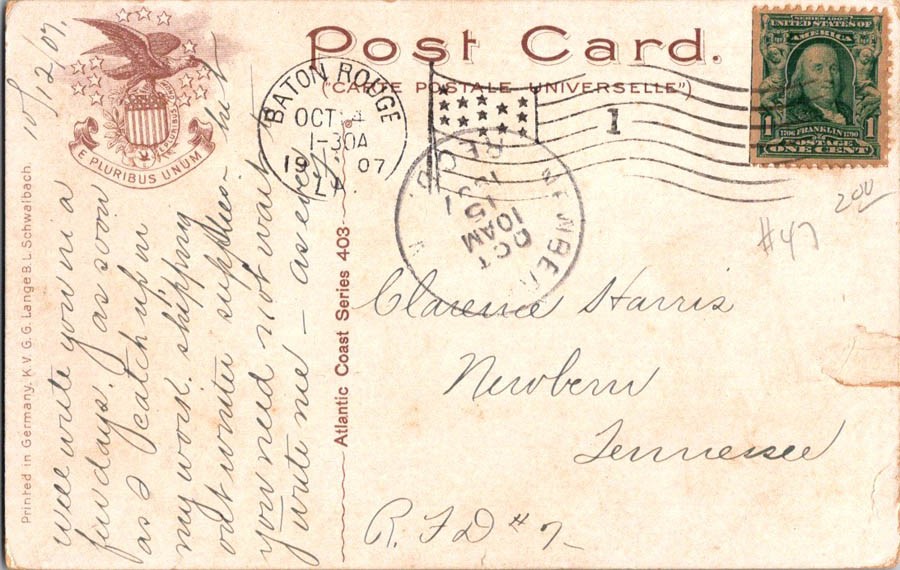 Post Card.
("CARTE POSTALE UNIVERSELLE")
E PLURIBUS UNUM
BATON ROUGE
OCT 4
1-30A
1907
LA.
1
REC'D
NEWBERN
OCT
10AM
15
1907
SERIES 1902
UNITED STATES OF
AMERICA
1 1
1706 FRANKLIN 1790
POSTAGE
ONE CENT
200
#47
10/12/07.
will write you in a
few days, as soon
as I catch up in
my work. shipping
out winter supplies - but
you need not wait to
write me - as ever,
Clarence Harris
Newbern
Tennessee
R. F D #7
Atlantic Coast Series 403
Printed in Germany, K.V.G.G. Lange B.L. Schwalbach.